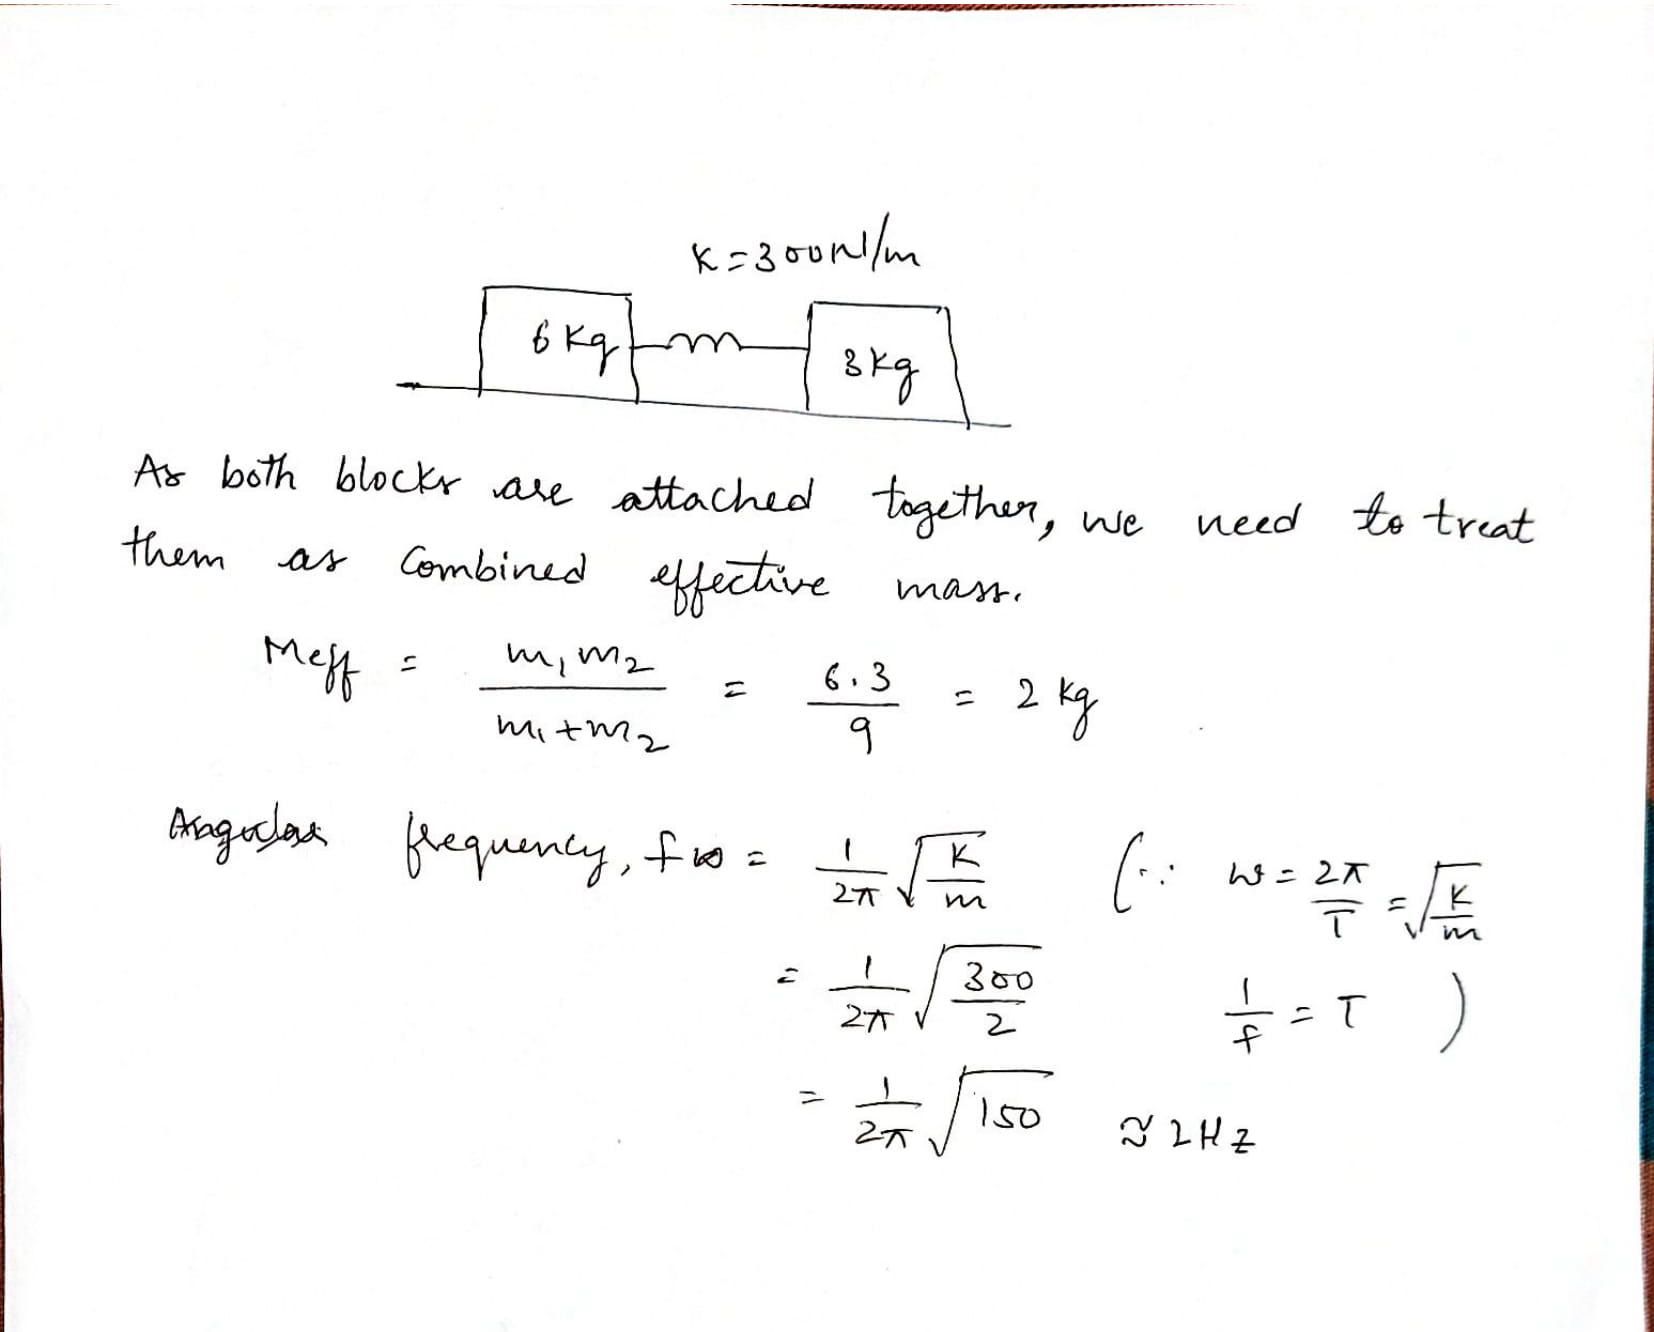 K = 300N/m
6 Kg
3 Kg
As both blocks are attached together, we need to treat
them as Combined effective mass.
Meff = m₁m₂ / m₁+m₂ = 6.3 / 9 = 2 kg
Angular frequency, fω = 1/2π √(K/m) (∵ ω = 2π/T = √(K/m)
= 1/2π √(300/2) 1/f = T )
= 1/2π √150 ≈ 2Hz